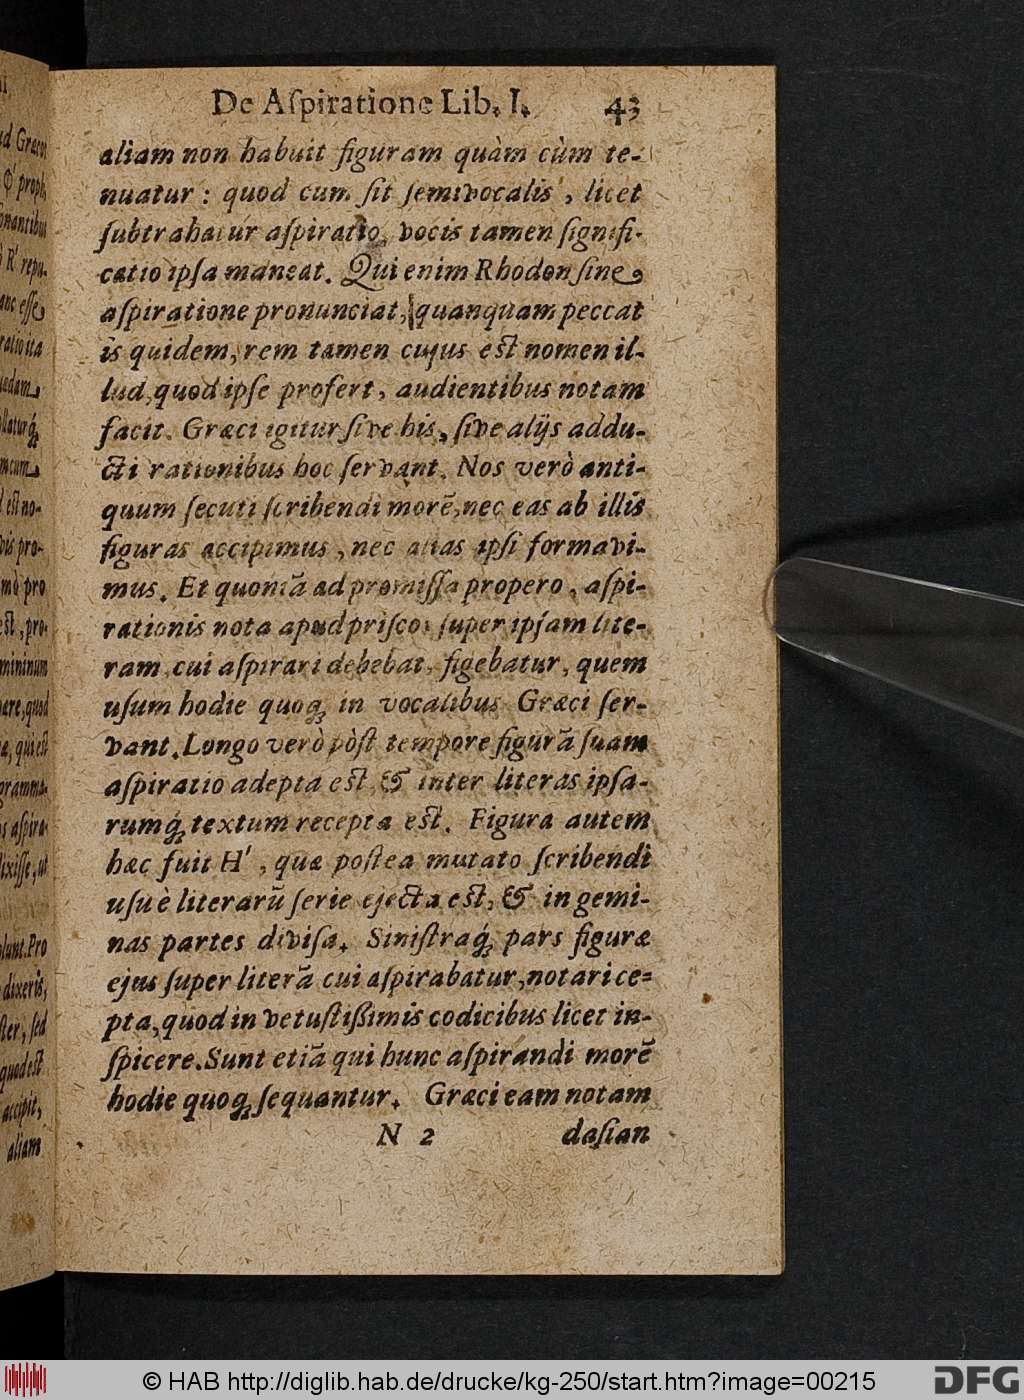 De Aſpiratione Lib. I. 43
aliam non habuit figuram quàm cùm te-
nuatur : quod cum ſit ſemivocalis , licet
ſubtrahatur aſpiratio, vocis tamen ſignifi-
catio ipſa maneat. Qui enim Rhodon ſine
aſpiratione pronunciat, quanquam peccat
is quidem, rem tamen cujus eſt nomen il-
lud, quod ipſe profert, audientibus notam
facit. Græci igitur ſive his, ſive alijs addu-
cti rationibus hoc ſervant. Nos verò anti-
quum ſecuti ſcribendi morẽ, nec eas ab illis
figuras accipimus, nec alias ipſi formavi-
mus. Et quoniã ad promiſſa propero, aſpi-
rationis nota apud priſcos ſuper ipſam lite-
ram, cui aſpirari debebat, figebatur, quem
uſum hodie quoq; in vocalibus Græci ſer-
vant. Longo verò pòſt tempore figurã ſuam
aſpiratio adepta eſt, & inter literas ipſa-
rumq́; textum recepta eſt. Figura autem
hæc fuit H', quæ poſtea mutato ſcribendi
uſu è literarũ ſerie ejecta eſt, & in gemi-
nas partes diviſa. Siniſtraq́; pars figuræ
ejus ſuper literã cui aſpirabatur, notari ce-
pta, quod in vetuſtißimis codicibus licet in-
ſpicere. Sunt etiã qui hunc aſpirandi morẽ
hodie quoq; ſequantur. Græci eam notam
N 2 daſian
ud Græcos
Φ' proph,
ſonantibus
R' repu-
anc eſſe
ratio ita
uedam
llatur q́;
mcum
d eſt no-
vis pro-
mò pro
eſt, pro-
mininum
nare, quod
a, qui eſt
gramma-
os aſpira-
ixiſſe, ut
olunt. Pro
dixeris,
ſter, ſed
quod eſt
accipit,
aliam
© HAB http://diglib.hab.de/drucke/kg-250/start.htm?image=00215
DFG